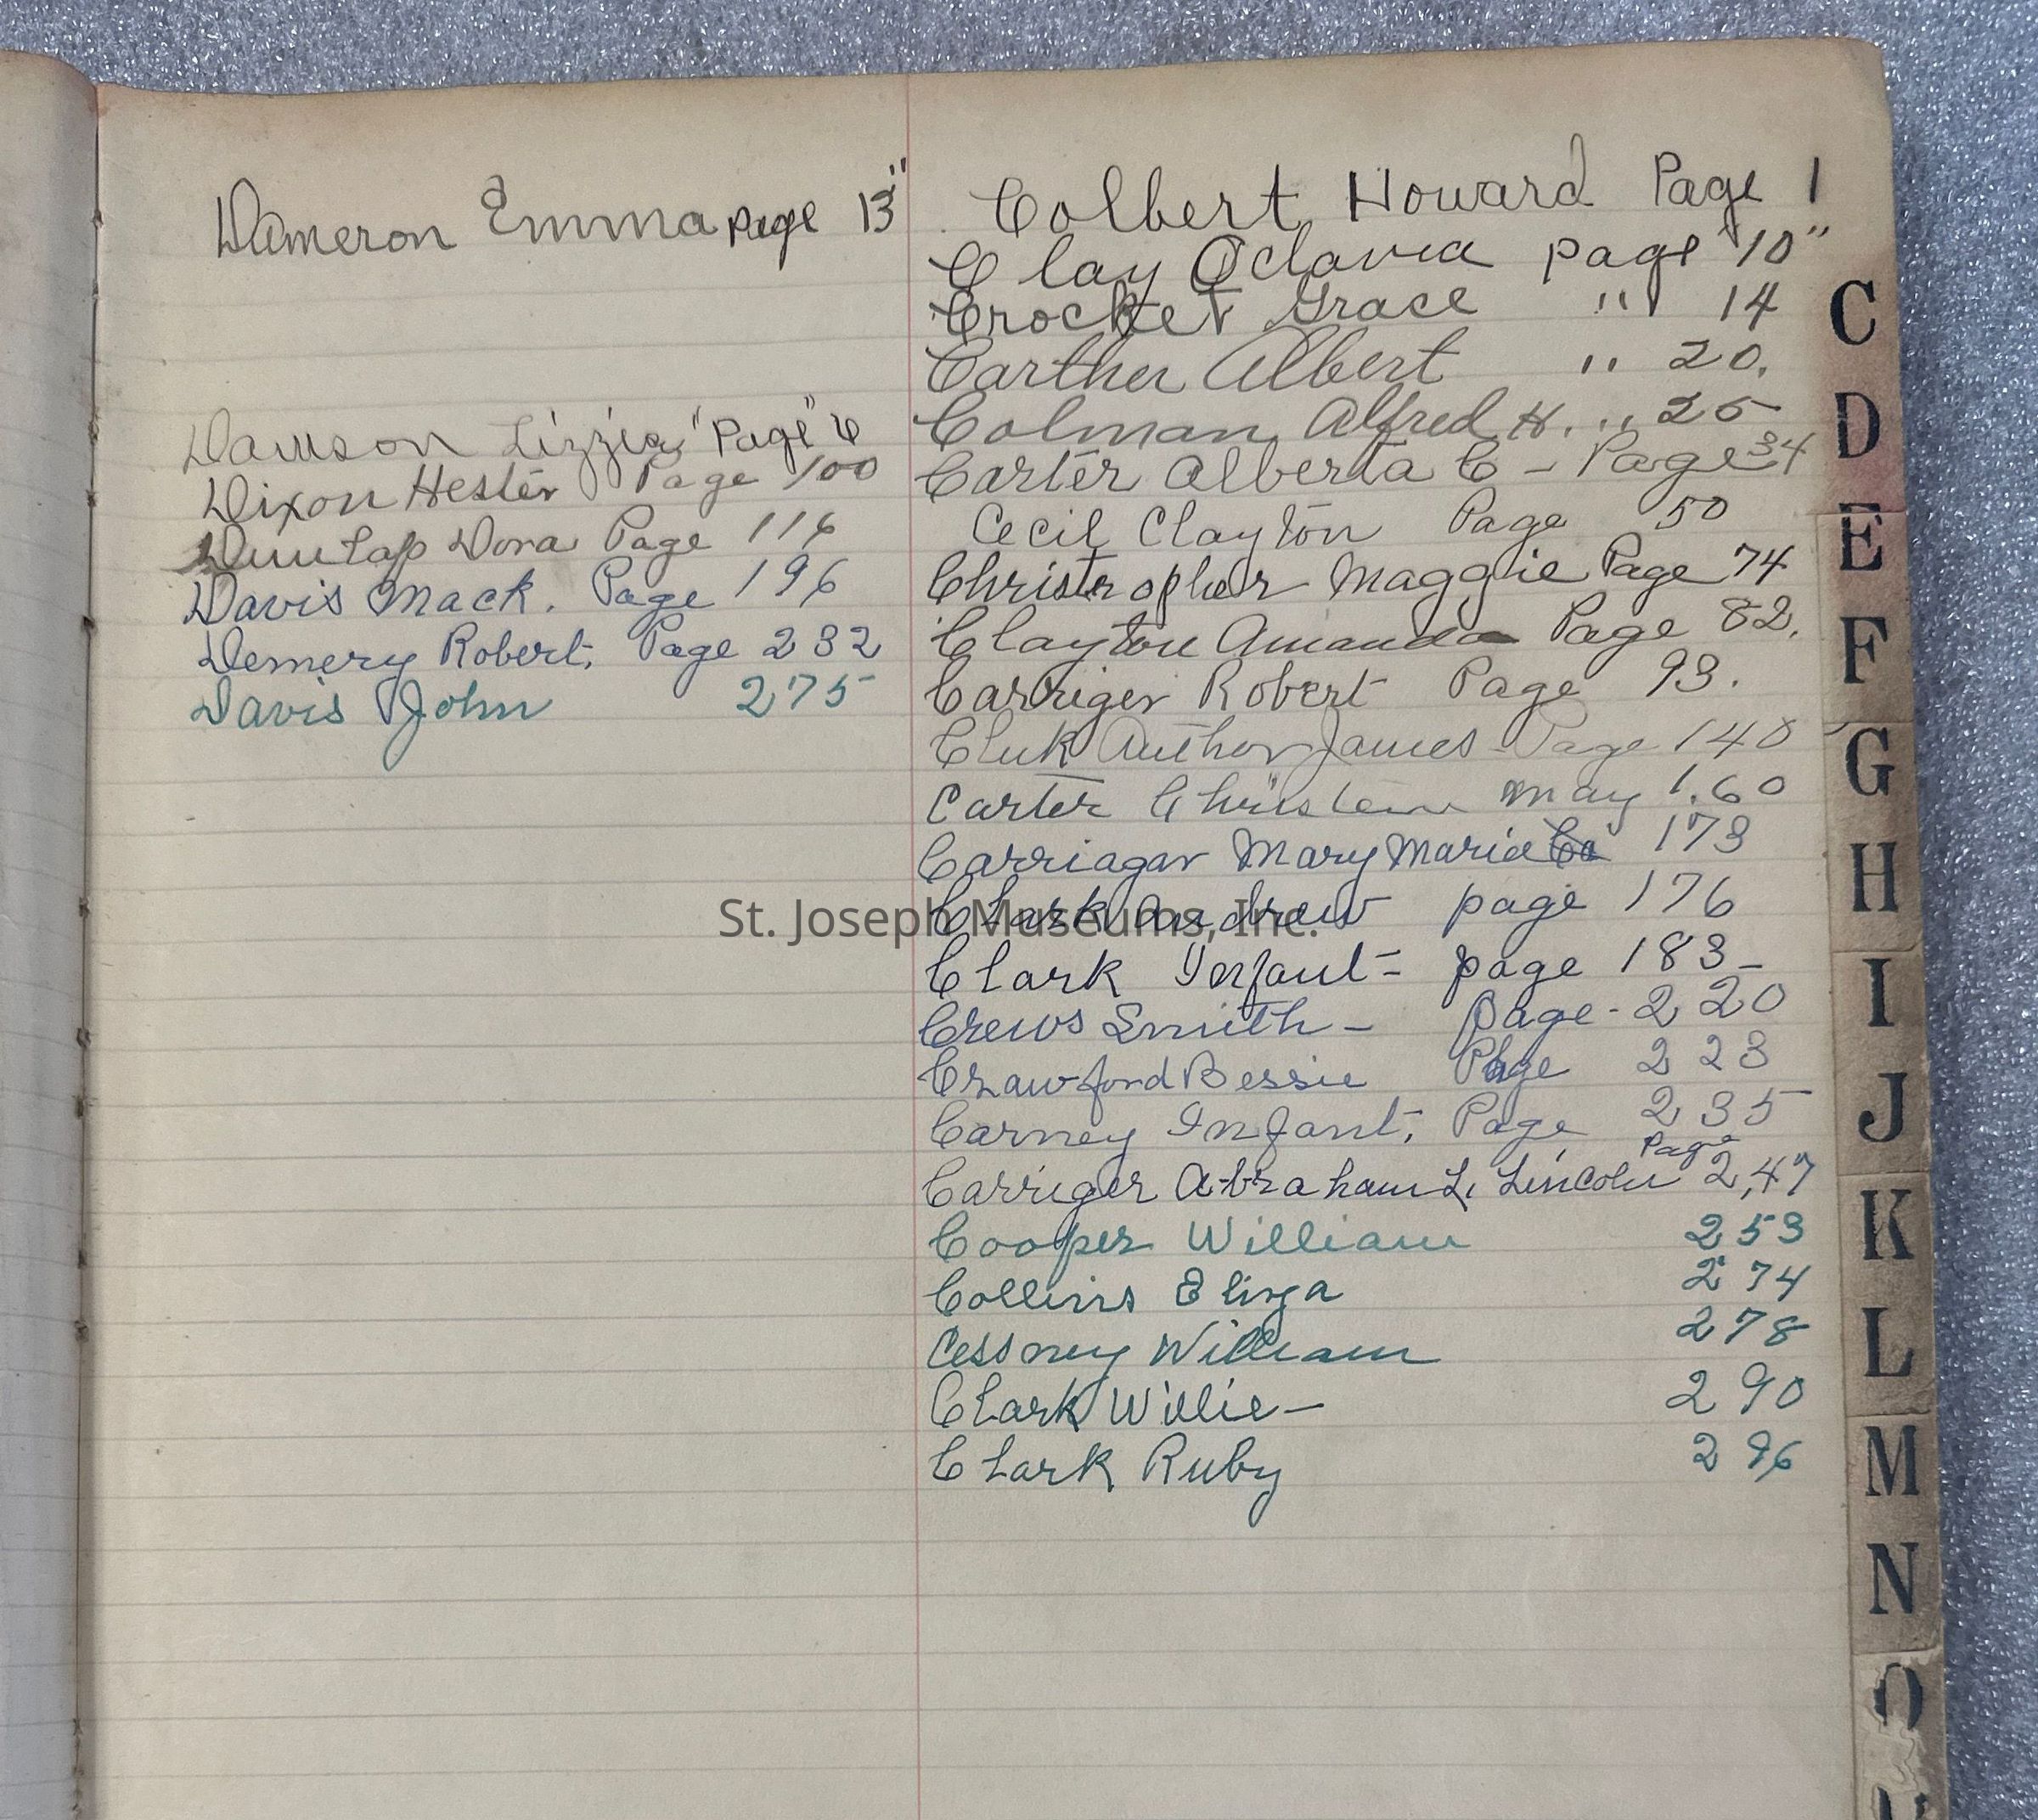 Dameron Emma page 13"
Dawson Lizzie "Page" 6
Dixon Hester Page 100
Dunlap Dora Page 116
Davis Mack. Page 196
Demery Robert. Page 232
Davis John 275
Colbert Howard Page 1
Clay Octavia page "10"
Crocket Grace " 14
Carther Albert " 20.
Colman Alfred H. " 25
Carter Alberta C - Page 34
Cecil Clayton Page 50
Christopher Maggie Page 74
Clayton Amanda Page 82.
Carriger Robert Page 93.
Cluk Author James - Page 140
Carter Christein May 160
Carriagar Mary Marie 173
Clark Andrew page 176
Clark Infant = page 183
Crews Smith - Page - 220
Crawford Bessie Page 223
Carney Infant. Page 235
Carriger Abraham L. Lincoln Page 2,47
Cooper William 253
Collins Eliza 274
Cessney William 278
Clark Willie - 290
Clark Ruby 296
C
D
E
F
G
H
I
J
K
L
M
N
O
St. Joseph Museums, Inc.